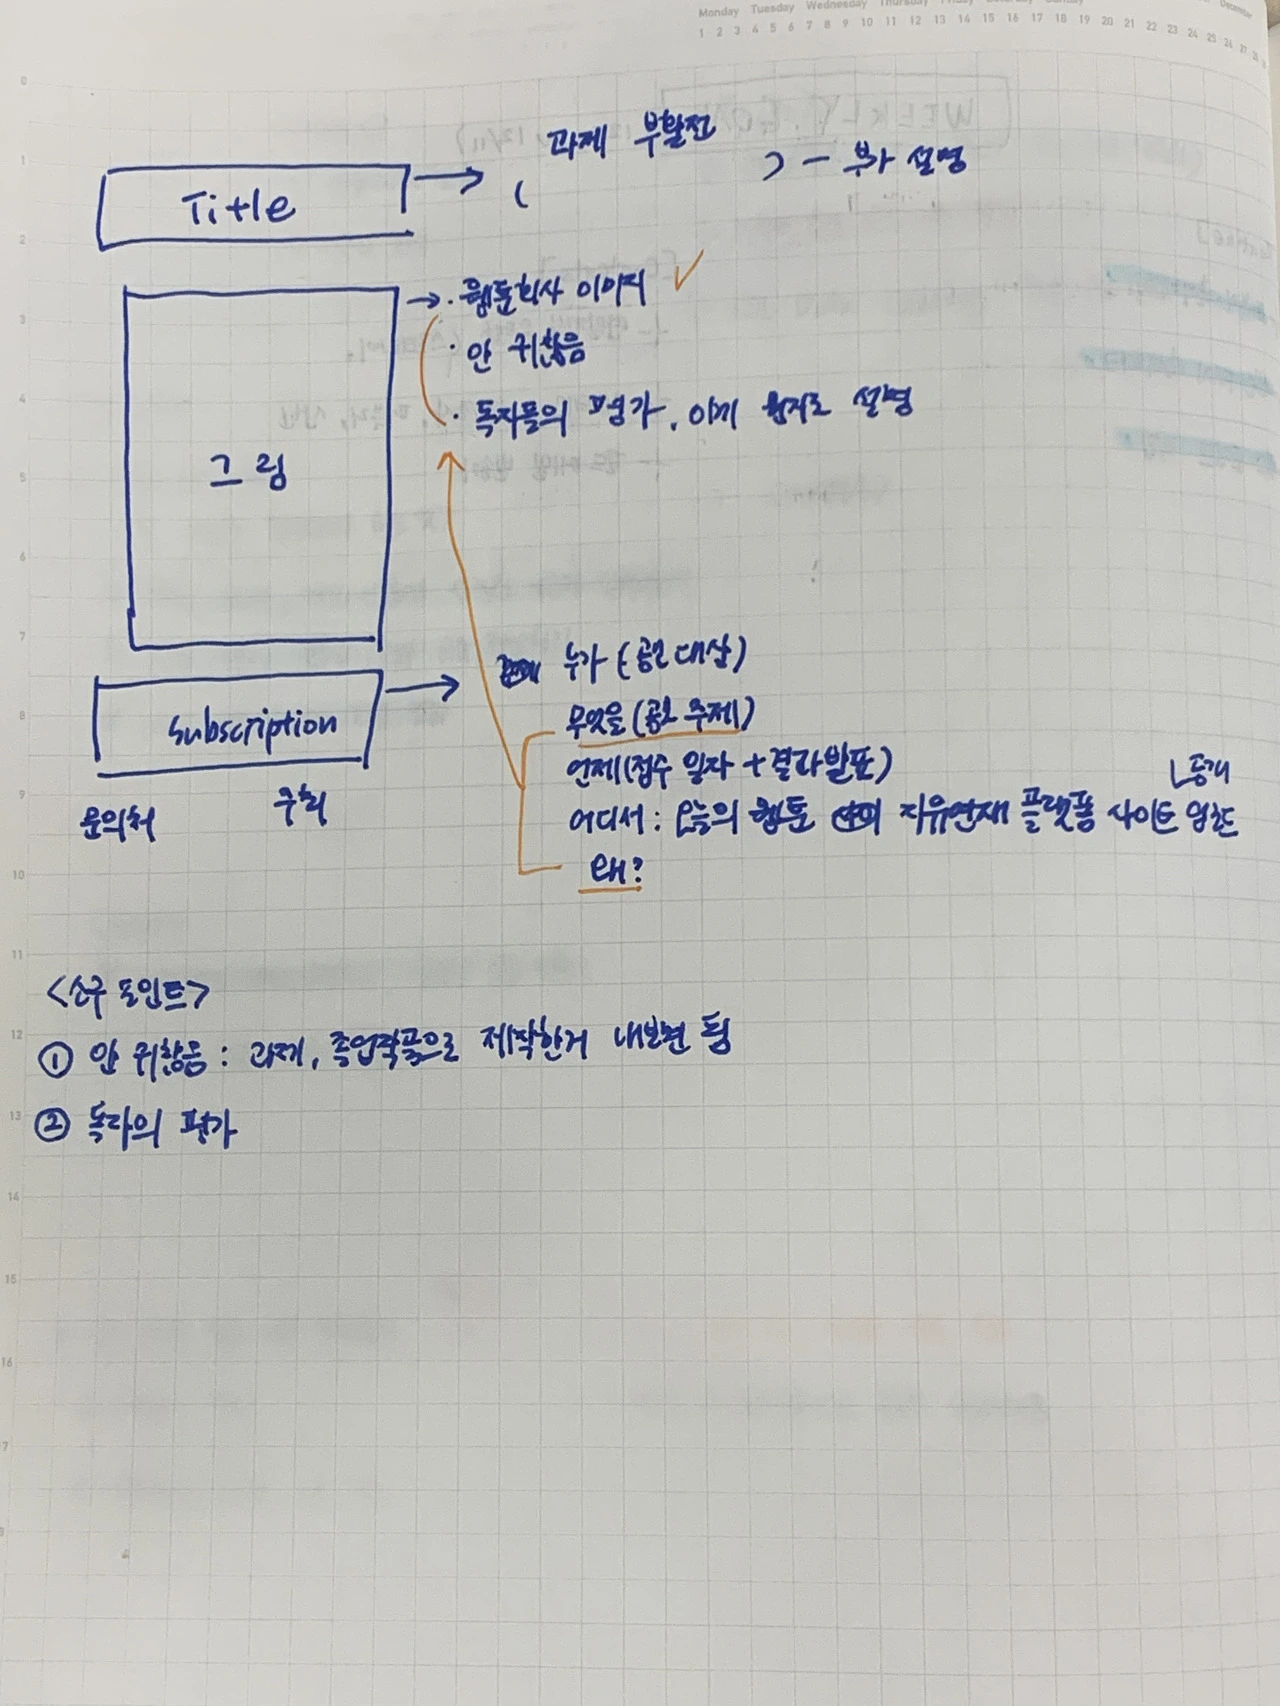 Monday Tuesday Wednesday Thursday Friday
1 2 3 4 5 6 7 8 9 10 11 12 13 14 15 16 17 18 19 20 21 22 23 24 25 26 27 28
Title
과제 부활전
( ) - 부가 설명
그림
· 웹툰회사 이미지
· 안 귀찮음
· 독자들의 평가, 설명
subscription
문의처
주최
누가 (공모 대상)
무엇을 (공모 주제)
언제 (접수 일자 + 결과발표)
등재
어디서 : 오늘의 웹툰 자유연재 플랫폼 사이트
왜?
<소구 포인트>
① 안 귀찮음 : 과제, 졸업작품으로 제작한거 내보면 됨
② 독자의 평가
0
1
2
3
4
5
6
7
8
9
10
11
12
13
14
15
16